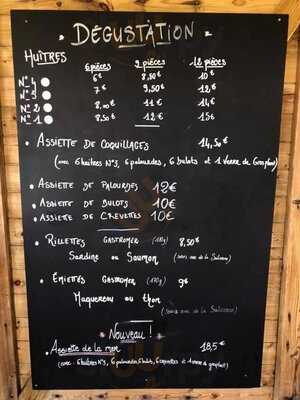 DÉGUSTATION
HUÎTRES
6 pièces 9 pièces 12 pièces
N°4 6€ 8,50€ 10€
N°3 7€ 9,50€ 12€
N°2 8,00€ 11€ 14€
N°1 8,50€ 12€ 15€
• ASSIETTE DE COQUILLAGES 14,50€
(avec 6 huîtres N°3, 6 palourdes, 6 bulots et 1 verre de Gros plant)
• ASSIETTE DE PALOURDES 12€
• ASSIETTE DE BULOTS 10€
• ASSIETTE DE CREVETTES 10€
• RILLETTES GASTROMER 8,50€
Sardine ou Saumon
• ÉMIETTÉS GASTROMER 9€
Maquereau ou thon
Nouveau !
• Assiette de la mer 18,5€
(avec 6 huîtres N°3, 6 palourdes, 6 bulots, 6 crevettes et 1 verre de gros plant)